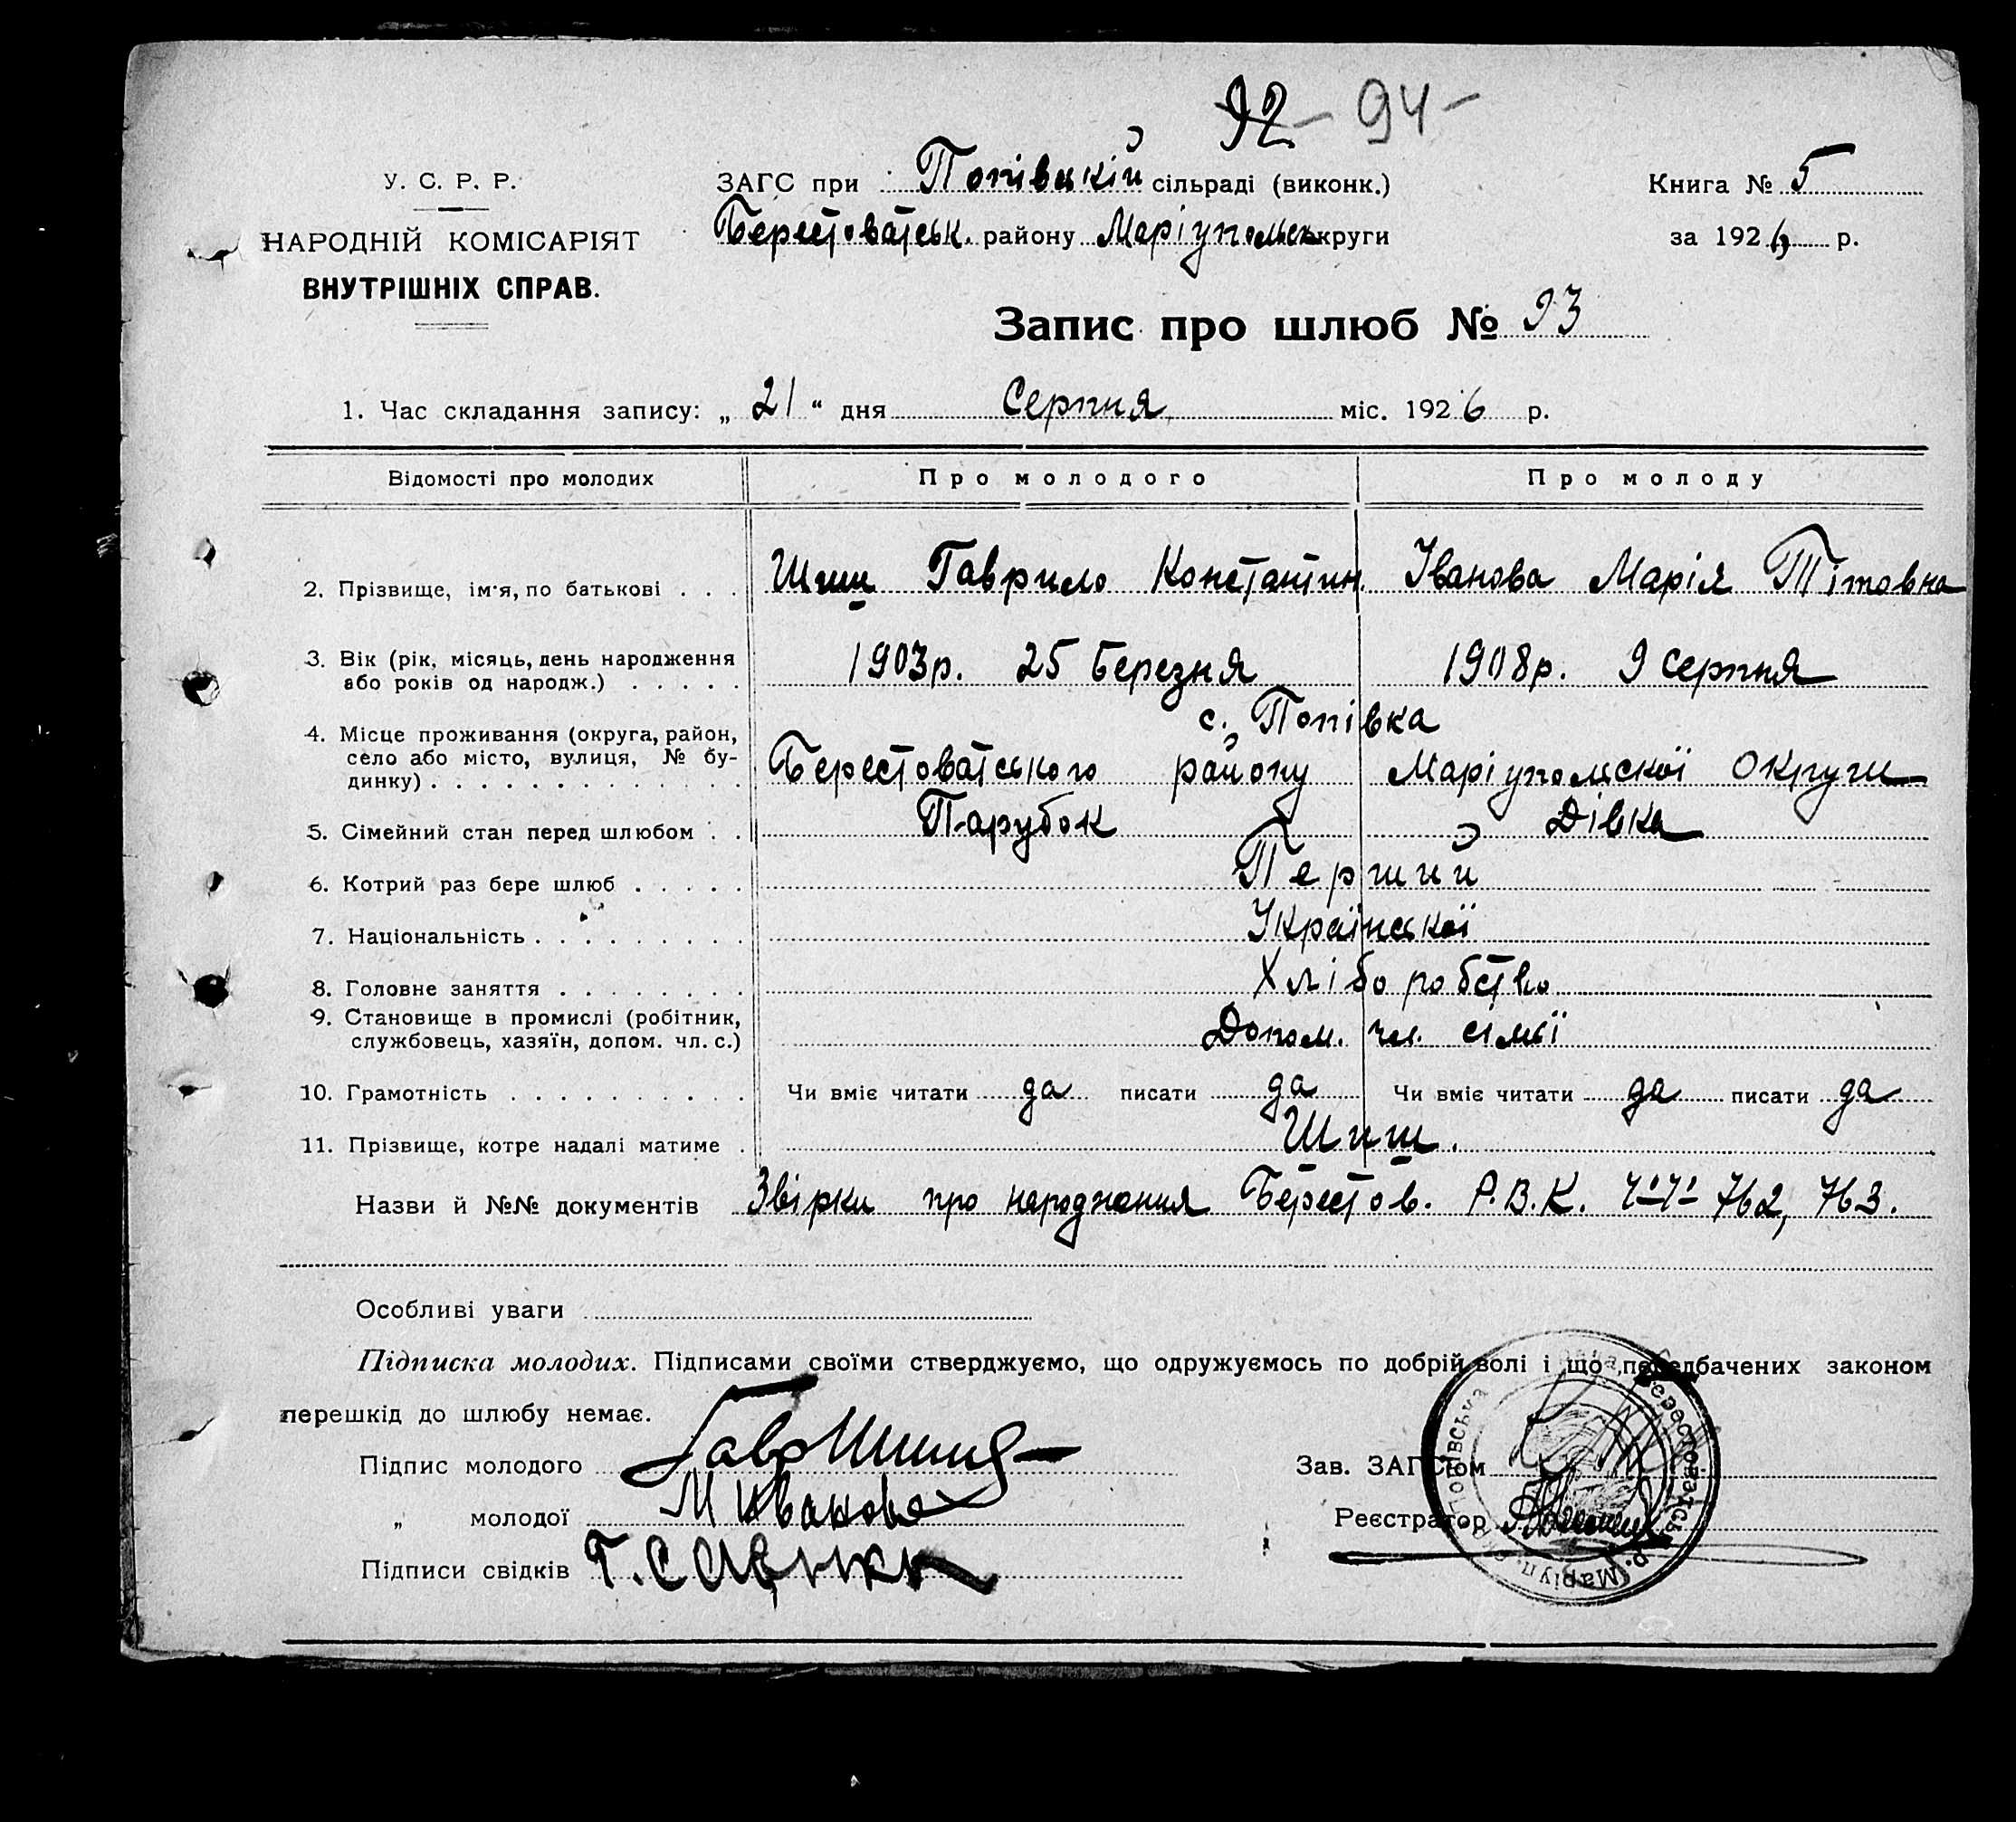 92 - 94 -
У. С. Р. Р.
НАРОДНІЙ КОМІСАРІЯТ
ВНУТРІШНІХ СПРАВ.
ЗАГС при Попівській сільраді (виконк.)
Берестоватськ. району Маріупольськ округи
Книга № 5
за 1926 р.
Запис про шлюб № 93
1. Час складання запису: „ 21 “ дня Серпня міс. 1926 р.
Відомості про молодих Про молодого Про молоду
2. Прізвище, ім'я, по батькові . . . Шиш Гаврило Константин. Іванова Марія Тітовна
3. Вік (рік, місяць, день народження
або років од народж.) . . . . . 1903р. 25 Березня 1908р. 9 Серпня
с. Попівка
4. Місце проживання (округа, район,
село або місто, вулиця, № бу-
динку) . . . . . . . . . . . . . Берестоватського району Маріупольскої Округи
5. Сімейний стан перед шлюбом . . Парубок Дівка
6. Котрий раз бере шлюб . . . . . Перший
7. Національність . . . . . . . . . Української
8. Головне заняття . . . . . . . . Хліборобство
9. Становище в промислі (робітник,
службовець, хазяїн, допом. чл. с.) Допом. чл. сімьї
10. Грамотність . . . . . . . . . . Чи вміє читати да писати да Чи вміє читати да писати да
11. Прізвище, котре надалі матиме . Шиш.
Назви й №№ документів Звірки про народження Берестов. Р.В.К. Ч.Ч. 762, 763.
Особливі уваги
Підписка молодих. Підписами своїми стверджуємо, що одружуємось по добрій волі і що передбачених законом
перешкід до шлюбу немає.
Підпис молодого Гавр Шиш
„ молодої М Иванова
Підписи свідків Г.
Зав. ЗАГС'ом
Реєстратор